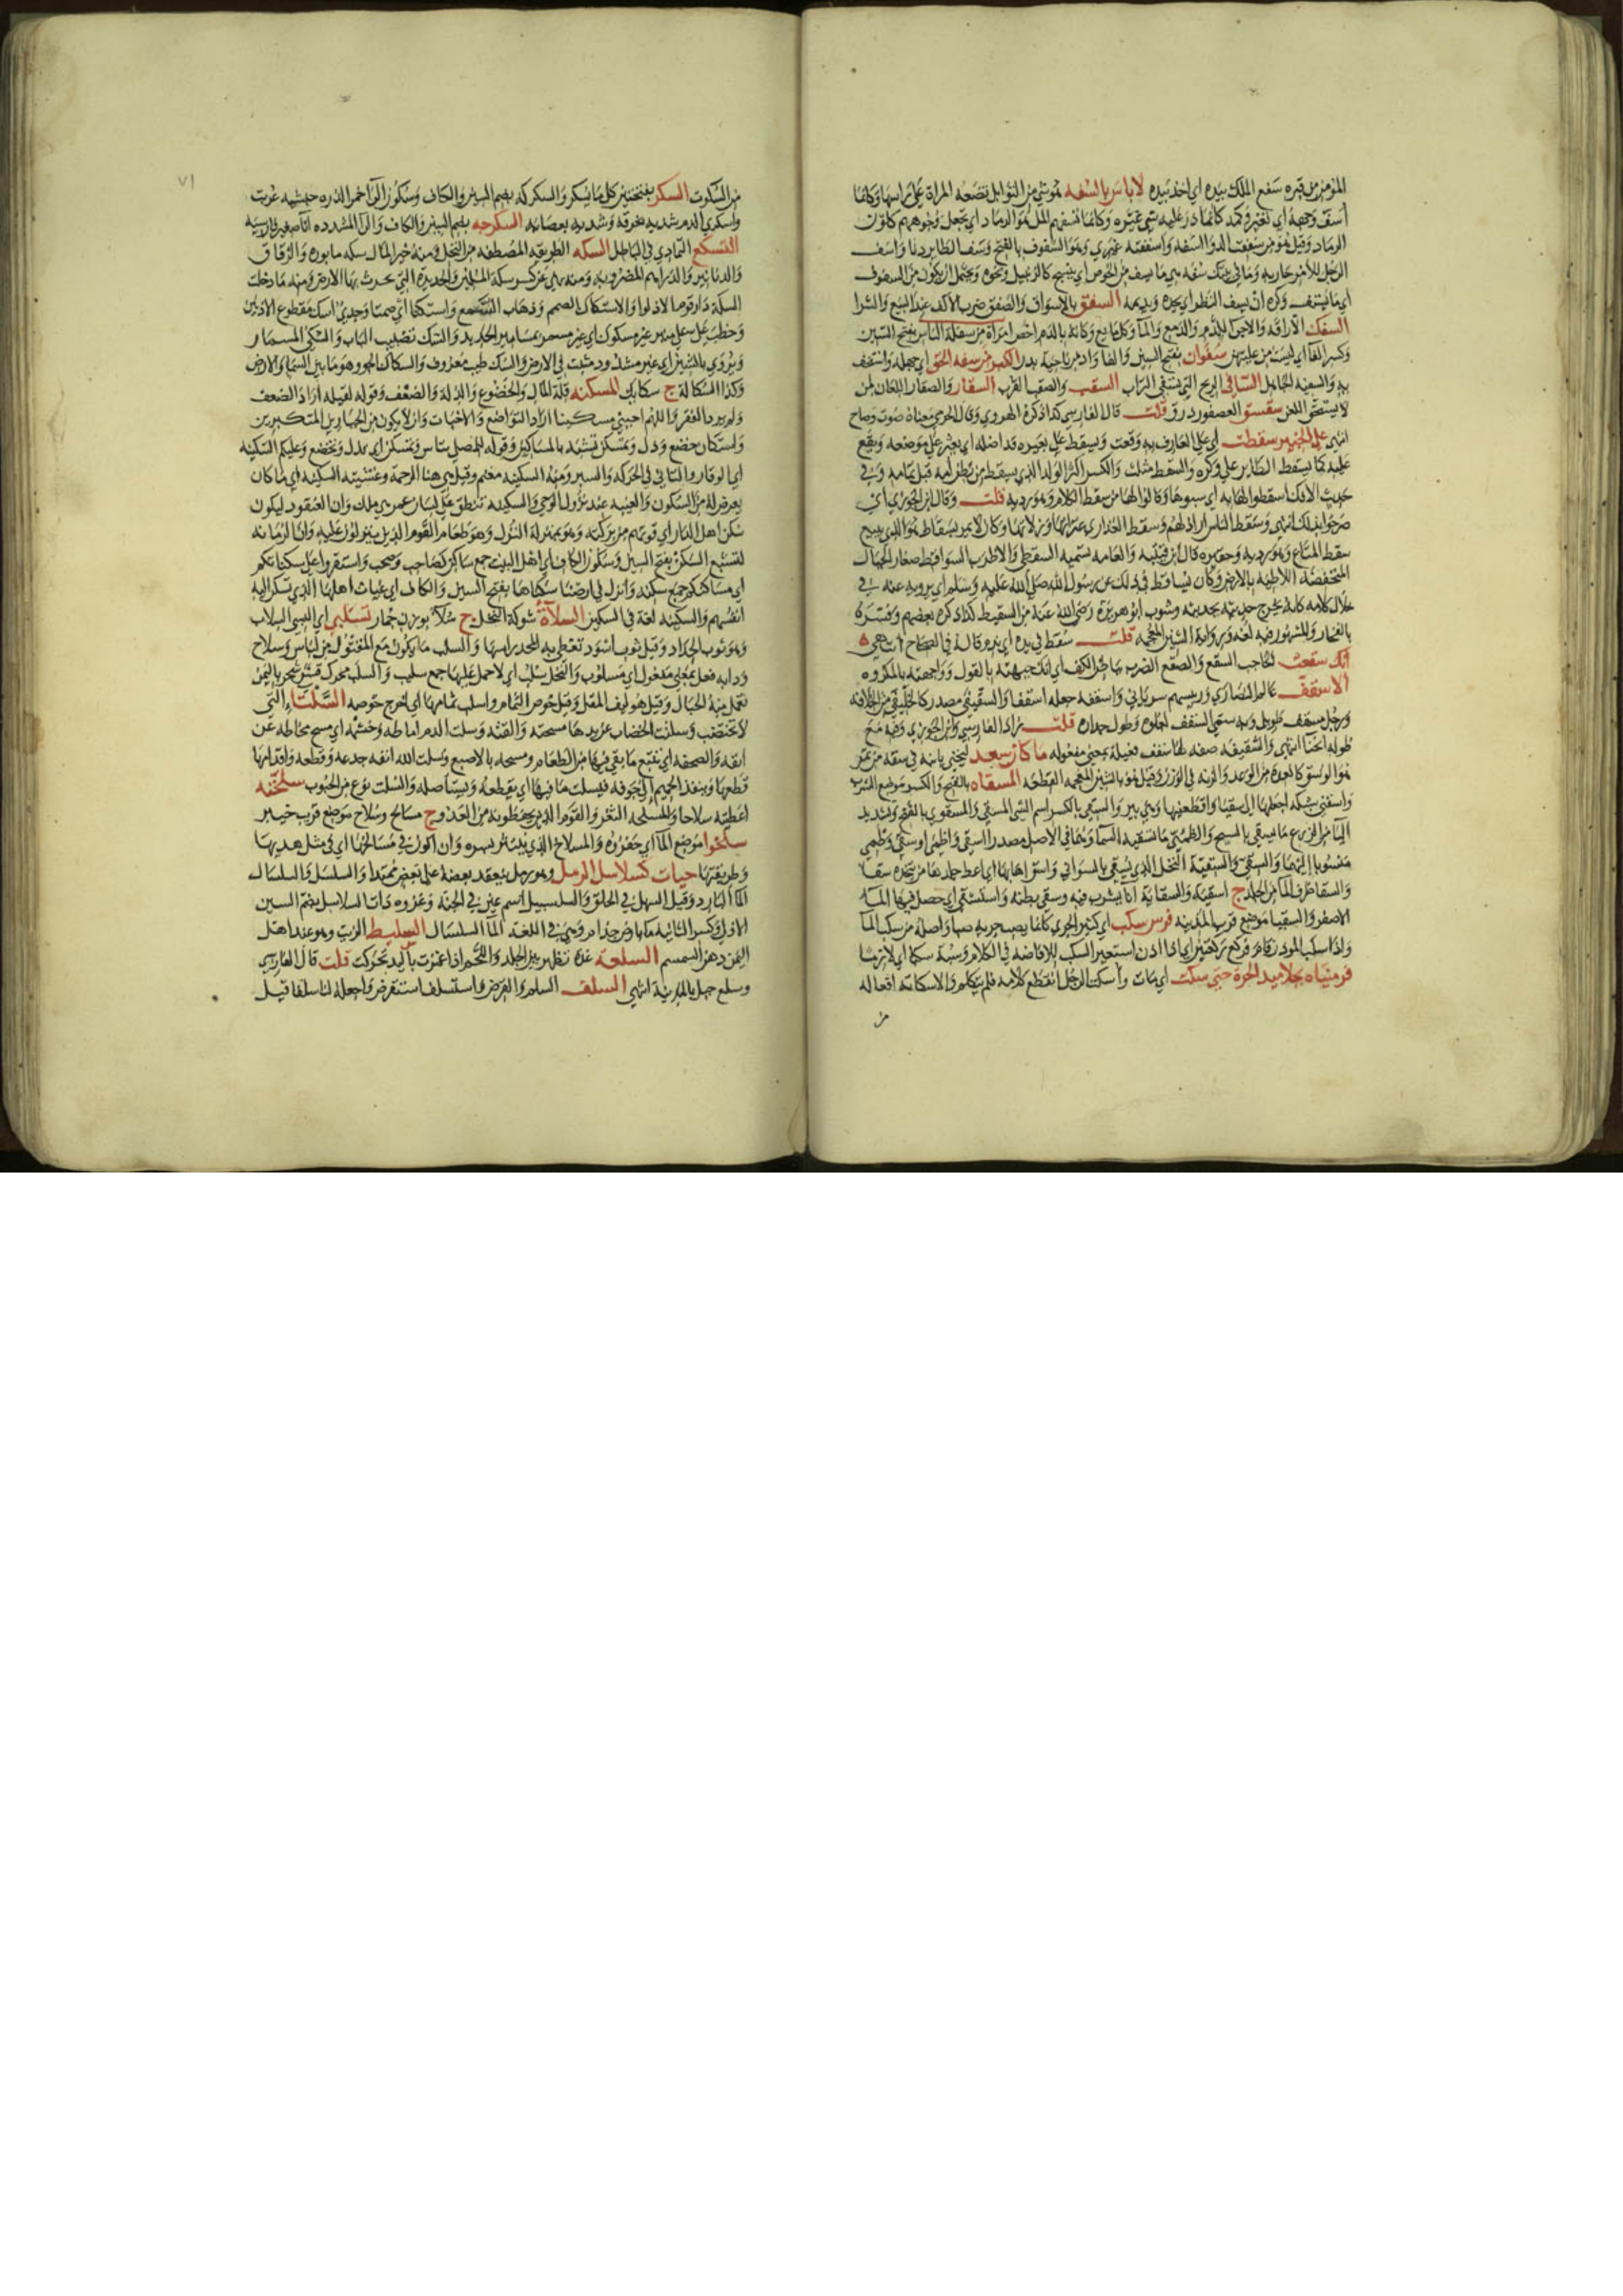 المؤمن من قبره سفع الملك بيده اي اخذ بيده لا باس بالسفه هو شي من التوابل تضعه المراة على راسها وكانما
اسف وجهه اي تغير وكمد كانما ذر عليه شي غيره وكانما تسفهم المل هو الرماد اي تجعل وجوههم كلون
الرماد وقيل هو من سففت الدوا اسفه واسففته غيري وهو السفوف بالفتح وسف الطاير دنا واسف
الرجل للامر قاربه وما في بيتك سفه هي ما يسف من الخوص اي ينسج كالزبيل ونحوه ويحتمل ان يكون من السفوف
اي ما يستف وكره ان يسف النظر اي يحده ويديمه السفق بالاسواق والصفق ضرب الاكف عند البيع والشرا
السفك الاراقه والاجرا للدم والدمع والما وكل مايع وكانه بالدم اخص امراة من سفلة الناس بفتح السين
وكسر الفا اي ليست من عليتهن سفوان بفتح السين والفا واد من ناحية بدر الكبر من سفه الحق اي جهله واستخف
به والسفيه الجاهل السافي الريح التي تسفي التراب السقب والصقب القرب السقار والصقار اللعان لمن
لا يستحق اللعن سقسق العصفور درق قلت قال الفارسي كذا ذكره الهروي وقال الحربي معناه صوت وصاح
انتهي على الخبير سقطت اي على العارف به وقعت ويسقط على بعيره قد اضله اي يعثر على موضعه ويقع
عليه كما يسقط الطاير على وكره والسقط مثلث والكسر اكثر الولد الذي يسقط من بطن امه قبل تمامه وفي
حديث الافك اسقطوا لها به اي سبوها وقالوا لها من سقط الكلام وهو رديه قلت وقال ابن الجوزي اي
صرحوا بذلك انتهي وسقط الناس اراذلهم وسقط العذاري عثراتها وزلاتها وكان لا يمر بسقاط هو الذي يبيع
سقط المتاع وهو رديه وحقيره قال ابن قتيبه والعامه تسميه السقطي والاظرب السواقط صغار الجبال
المنخفضة اللاطيه بالارض وكان يساقط في ذلك عن رسول الله صلى الله عليه وسلم اي يرويه عنه في
خلال كلامه كانه يخرج حديثه بحديثه وشرب ابو هريرة رضي الله عنه من السقيط كذا ذكره بعضهم وفسره
بالفخار والمشهور فيه لغة ورواية الشين المعجمه قلت سقط في يده اي ندم قاله في الصحاح انتهى
انك سقعت الحاجب السقع والصقع الضرب بباطن الكف اي انك جبهته بالقول وواجهته بالمكروه
الاسقف عالم النصارى ورييسهم سرياني واسقفه جعله اسقفا والسقيفي مصدر كالخليفي من الخلافة
ورجل مسقف طويل وبه سمي السقف لعلوه وطول جداره قلت زاد الفارسي وابن الجوزي وفيه مع
طوله انحنا انتهي والسقيفه صفه لها سقف فعيلة بمعني مفعوله ما كان سعد ليخني بابنه في سقه من تمر
هو الوسق كالعدة من الوعد والزنه في الوزن وقيل هو بالشين المعجمه القطعه المسقاه بالفتح والكسر موضع الشرب
واسقني شبكه اجعلها لي سقيا واقطعنيها وهي بير والسقي بالكسر اسم الشي المسقي والمسقوي بالفتح وتشديد
اليا من الزرع ما يسقي بالسيح والمظمئي ما تسقيه السما وهما في الاصل مصدرا اسقي واظمى او سقي وظمي
منسوبا اليهما والسقي والسقية النخل الذي يسقي بالسواني واستق اهابها اي اعط جلدها من يتخذه سقا
والسقا ظرف الما من الجلد ج اسقية والسقاية انا يشرب فيه وسقي بطنه واستسقي اي حصل فيها الما
الاصفر والسقيا موضع قرب المدينه فرس سكب اي كثير الجري كانما يصب جريه صبا واصله من سكب الما
واذا سكب الموذن قام فركع ركعتين اي اذا اذن استعير السكب للافاضه في الكلام وسبة سكبا اي لازمه
فرميناه بجلاميد الحرة حتى سكت اي مات واسكت الرجل انقطع كلامه فلم يتكلم والاسكاته افعاله
من
٧١
من السكوت السكر بفتحتين كل ما يسكر والسكركه بضم السين والكاف وسكون الرا خمر الذره حبشيه عربت
واسكري الدم شديه بخرقه وشديه بعصابه السكرجه بضم السين والكاف والرا المشدده انا صغير فارسيه
التسكع التمادي في الباطل السكه الطريقه المصطفه من النخل ومنه خير المال سكه مابوره والزقاق
والدنانير والدراهم المضروبه ومنه نهي عن كسر سكة المسلمين والحديدة التي يحرث بها الارض ومنه ما دخلت
السكة دار قوم الا ذلوا والاستكاك الصمم وذهاب السمع واستكتا اي صمتا وجدي اسك مقطوع الاذنين
وخطب علي علي منبر غير مسكوك اي غير مسمر بمسامير الحديد والسك تضبيب الباب والسكي المسمار
ويروي بالشين اي غير مشدود مثبت في الارض والسك طيب معروف والسكاك الجو وهو ما بين السما والارض
وكذا السكاكة ج سكايك المسكنه قلة المال والخضوع والذلة والضعف وقوله لقيله اراد الضعف
ولم يرد الفقر واللهم احيني مسكينا اراد التواضع والاخبات وان لا يكون من الجبارين المتكبرين
واستكان خضع وذل وتمسكن تشبه بالمساكين وقوله للمصلي تباس وتمسكن اي تذلل وتخضع وعليكم السكينه
اي الوقار والتاني في الحركه والسير ومنه السكينه مغنم وقيل هي هنا الرحمة وغشيته السكينه اي ما كان
يعرض له من السكون والغيبه عند نزول الوحي والسكينه تنطق على لسان عمر هي ملك وان العنقود ليكون
سكن اهل الدار اي قوتهم من بركته وهو بمنزلة النزل وهو طعام القوم الذين ينزلون عليه وان الرمانه
لتشبع السكن بفتح السين وسكون الكاف اي اهل البيت جمع ساكن كصاحب وصحب واستقروا على سكناتكم
اي مساكنكم جمع سكنه وانزل في ارضنا سكنها بفتح السين والكاف اي غياث اهلها الذي تسكن اليه
انفسهم والسكينه لغة في السكين السلاة شوكة النخل ج سلاء بوزن جمار تسلبي اي البسي السلاب
وهو ثوب الحداد وقيل ثوب اسود تغطي به المحد راسها والسلب ما يكون مع المقتول من لباس وسلاح
ودابه فعل بمعني مفعول اي مسلوب والنخل سلب اي لا حمل عليها جمع سليب والسلب محرك قشر شجر باليمن
تعمل منه الحبال وقيل هو ليف المقل وقيل خوص الثمام واسلب ثمامها اي اخرج خوصه السلتاء التي
لا تختضب وسلتت الخضاب عن يدها مسحته والقته وسلت الدم اماطه وخشمه اي مسح مخاطه عن
انفه والصحفه اي نتتبع ما بقي فيها من الطعام ومسحه بالاصبع وسلت الله انفه جدعه وقطعه واقدامها
قطعها وينفذ الحميم الي جوفه فيسلت ما فيها اي يقطعه ويستاصله والسلت نوع من الحبوب سلحته
اعطيته سلاحا والمسلحه الثغر والقوم الذين يحفظونه من العدو ج مسالح وسلاح موضع قريب خيبر
سلخوا موضع الما اي حفروه والمسلاخ الذي ينتثر بسره وان اكون في مسلاخها اي في مثل هديها
وطريقتها حيات كسلاسل الرمل وهو رمل ينعقد بعضه على بعض ممتدا والسلسل والسلسال
الما البارد وقيل السهل في الحلق والسلسبيل اسم عين في الجنة وغزوه ذات السلاسل بضم السين
الاولي وكسر الثانيه ما بارض جذام وهي في اللغه الما السلسال السليط الزيت وهو عند اهل
اليمن دهن السمسم السلعه غدة تظهر بين الجلد واللحم اذا غمزت باليد تحركت قلت قال الفارسي
وسلع جبل بالمدينة انتهي السلف السلم والقرض واستسلف استقرض واجعله لنا سلفا قيل